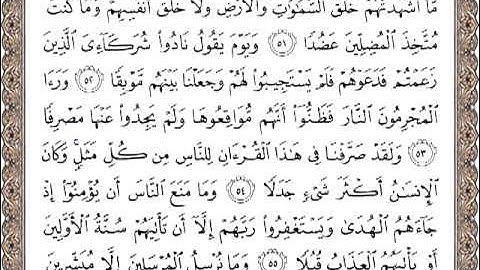 مَّا أَشْهَدتُّهُمْ خَلْقَ ٱلسَّمَٰوَٰتِ وَٱلْأَرْضِ وَلَا خَلْقَ أَنفُسِهِمْ وَمَا كُنتُ
مُتَّخِذَ ٱلْمُضِلِّينَ عَضُدًا ٥١ وَيَوْمَ يَقُولُ نَادُوا۟ شُرَكَآءِىَ ٱلَّذِينَ
زَعَمْتُمْ فَدَعَوْهُمْ فَلَمْ يَسْتَجِيبُوا۟ لَهُمْ وَجَعَلْنَا بَيْنَهُم مَّوْبِقًا ٥٢ وَرَءَا
ٱلْمُجْرِمُونَ ٱلنَّارَ فَظَنُّوٓا۟ أَنَّهُم مُّوَاقِعُوهَا وَلَمْ يَجِدُوا۟ عَنْهَا مَصْرِفًا
٥٣ وَلَقَدْ صَرَّفْنَا فِى هَٰذَا ٱلْقُرْءَانِ لِلنَّاسِ مِن كُلِّ مَثَلٍ وَكَانَ
ٱلْإِنسَٰنُ أَكْثَرَ شَىْءٍ جَدَلًا ٥٤ وَمَا مَنَعَ ٱلنَّاسَ أَن يُؤْمِنُوٓا۟ إِذْ
جَآءَهُمُ ٱلْهُدَىٰ وَيَسْتَغْفِرُوا۟ رَبَّهُمْ إِلَّآ أَن تَأْتِيَهُمْ سُنَّةُ ٱلْأَوَّلِينَ
أَوْ يَأْتِيَهُمُ ٱلْعَذَابُ قُبُلًا ٥٥ وَمَا نُرْسِلُ ٱلْمُرْسَلِينَ إِلَّا مُبَشِّرِينَ